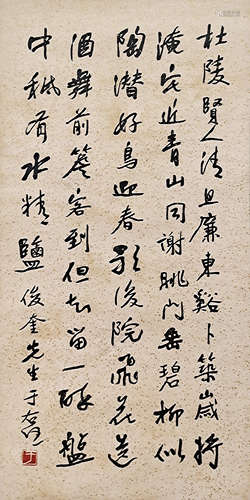 杜陵賢人清且廉東谿卜築歲將
淹宅近青山同謝朓門垂碧柳似
陶潛好鳥迎春歌後院飛花送
酒舞前簷客到但知留一醉盤
中祇有水精鹽 俊奎先生 于右任